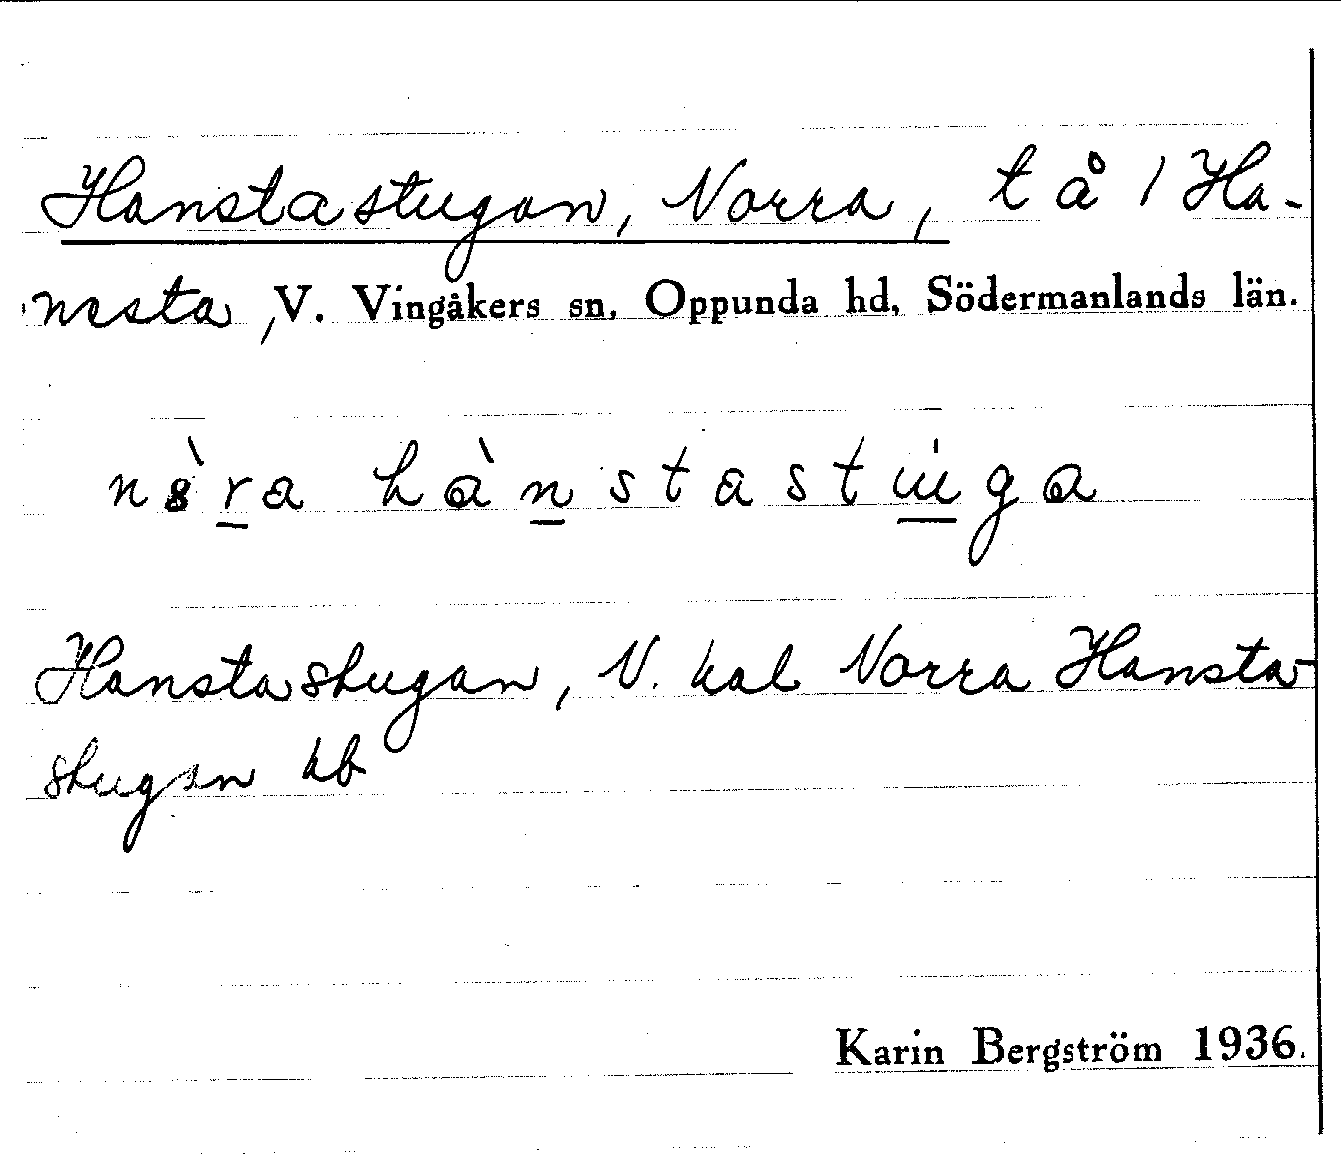 Hanstastugan, Norra, t å 1 Ha-
nesta, V. Vingåkers sn, Oppunda hd, Södermanlands län.
Hanstastugan, N. kal Norra Hansta-
stugan kb
Karin Bergström 1936.